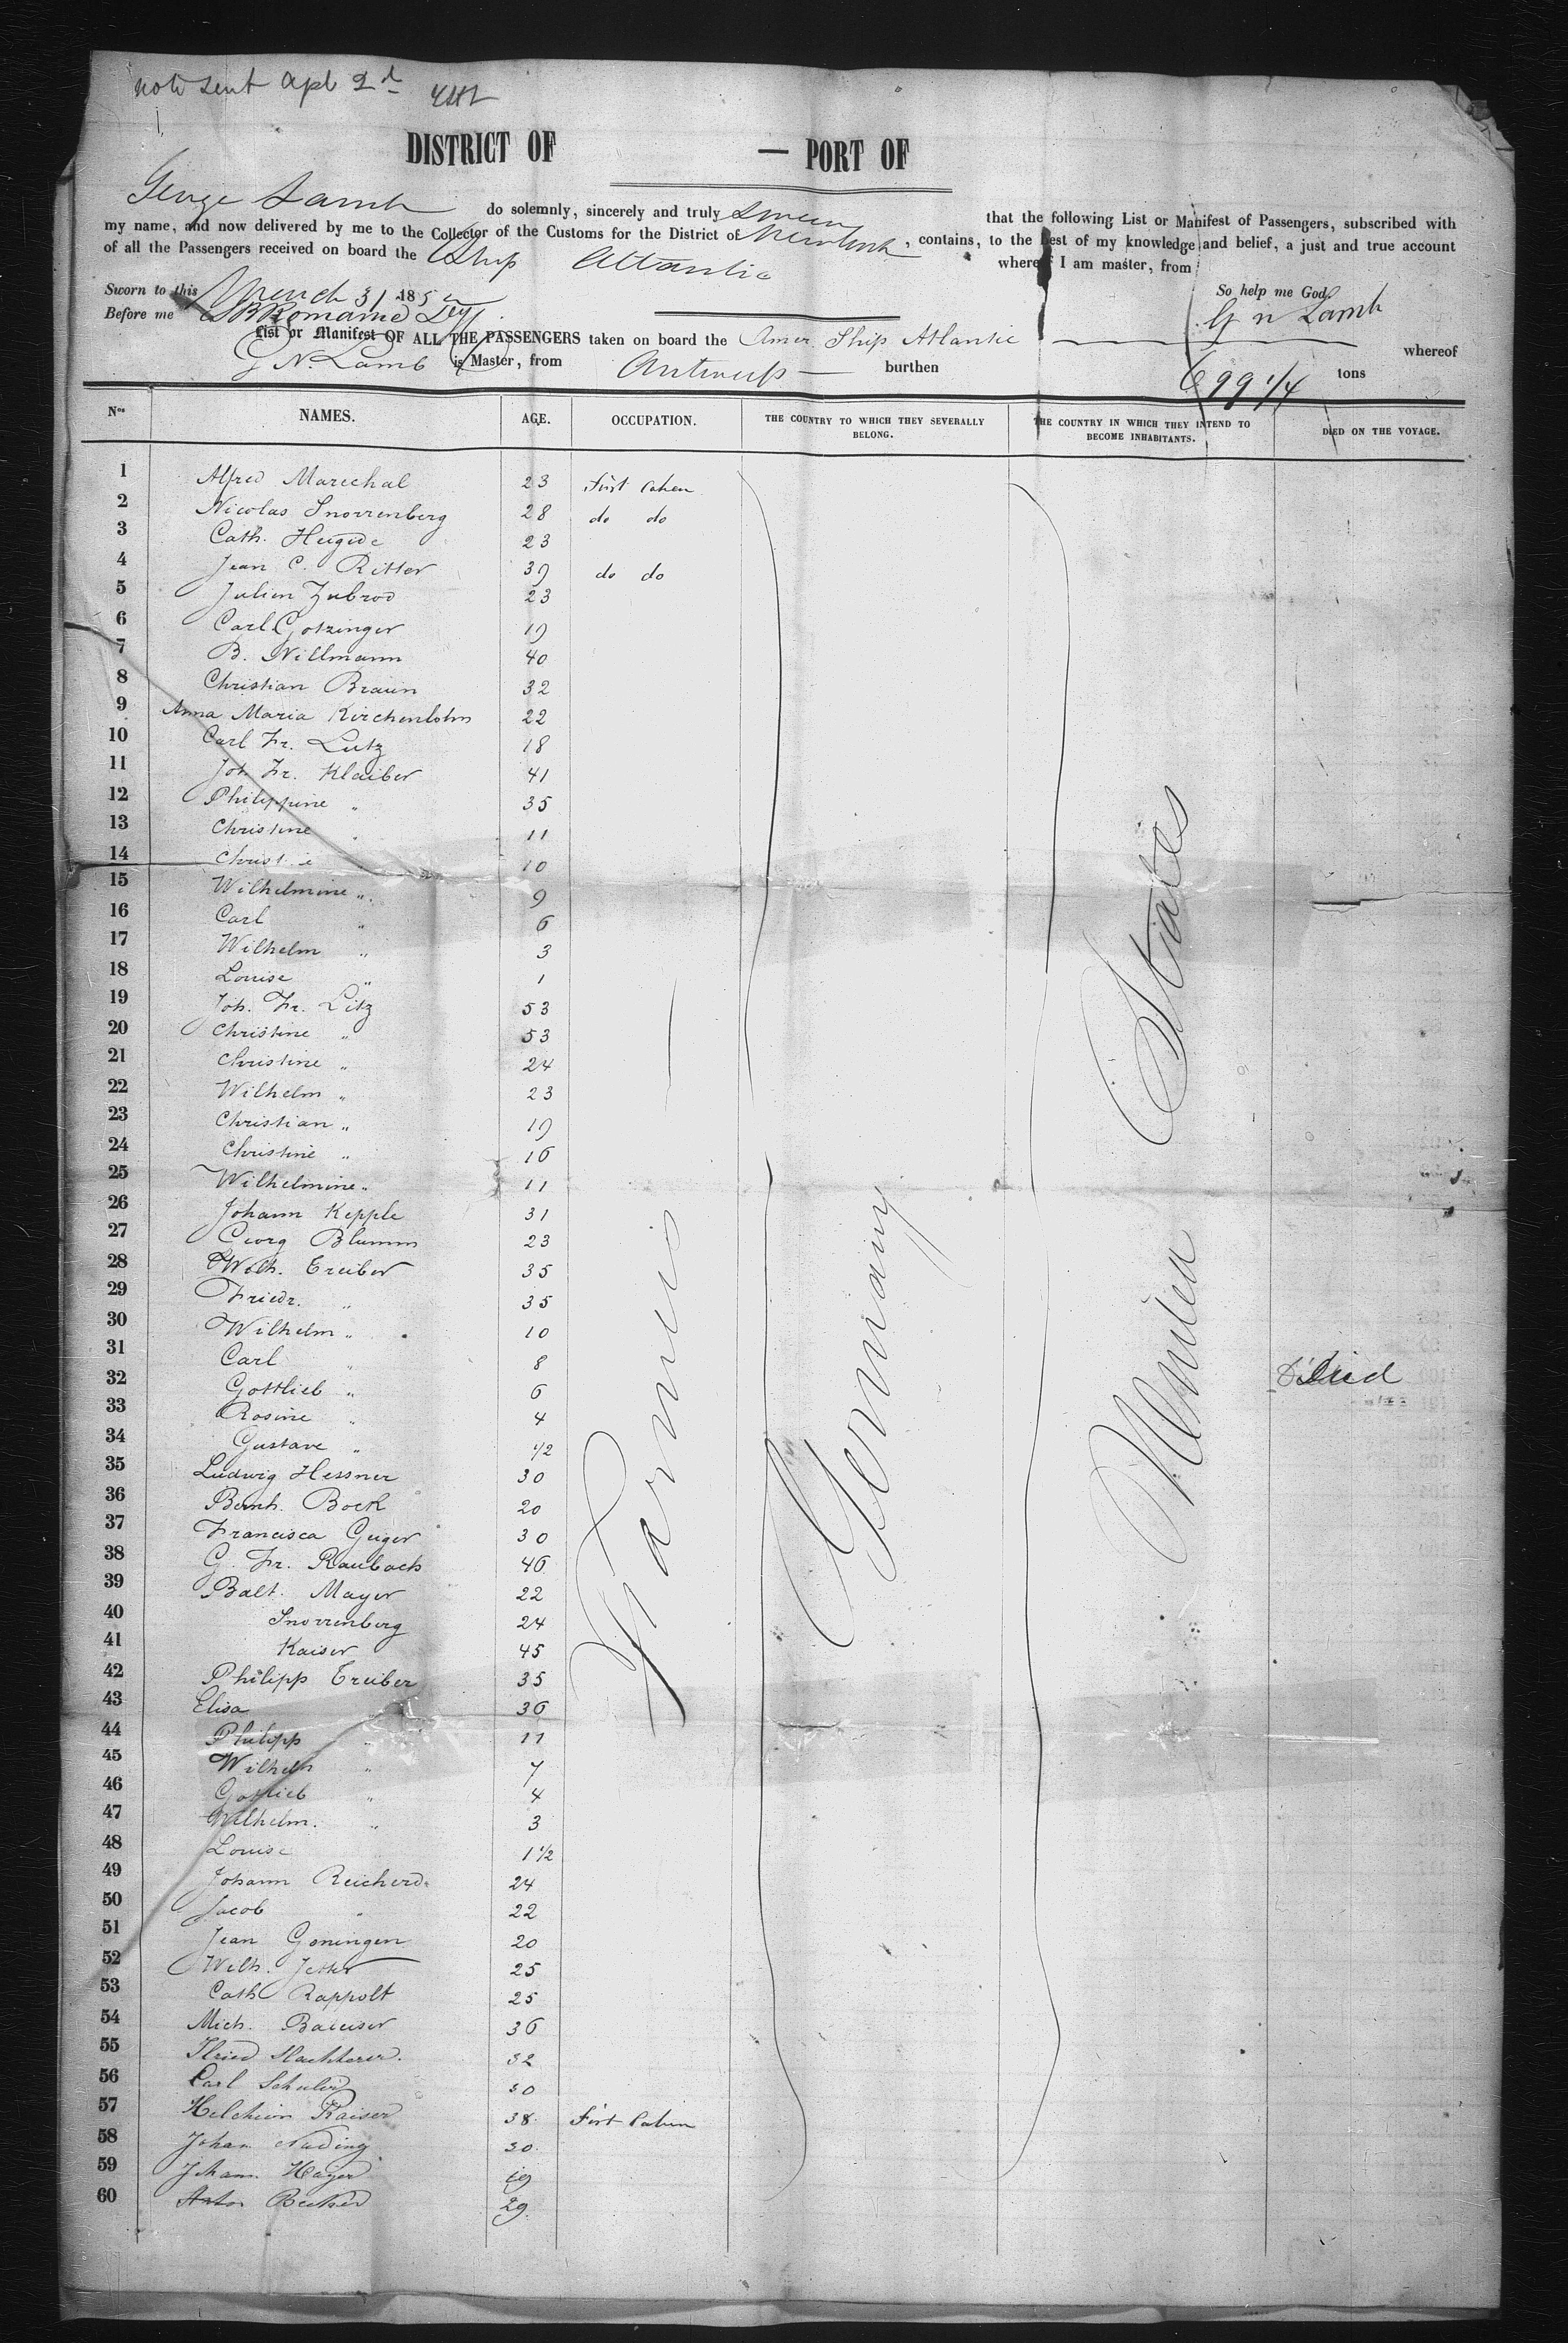 note sent Apl 2d
DISTRICT OF — PORT OF
George Lamb do solemnly, sincerely and truly swear that the following List or Manifest of Passengers, subscribed with
my name, and now delivered by me to the Collector of the Customs for the District of New York, contains, to the best of my knowledge and belief, a just and true account
of all the Passengers received on board the Ship Atlantic whereof I am master, from
Sworn to this March 31 185 So help me God.
Before me G N Lamb
List or Manifest OF ALL THE PASSENGERS taken on board the Amer. Ship Atlantic whereof
G N. Lamb is Master, from Antwerp — burthen 699 1/4 tons
Nos NAMES. AGE. OCCUPATION. THE COUNTRY TO WHICH THEY SEVERALLY BELONG. THE COUNTRY IN WHICH THEY INTEND TO BECOME INHABITANTS. DIED ON THE VOYAGE.
1 Alfred Marechal 23 First Caben
2 Nicolas Snorrenberg 28 do do
3 Cath. 23
4 Jean C. Ritter 39 do do
5 Julien Zubrod 23
6 Carl Gotzinger 19
7 B. Willmann 40
8 Christian Braun 32
9 Anna Maria Kirchenlohn 22
10 Carl Fr. Lutz 18
11 Joh Fr. Klaiber 41
12 Philippine " 35
13 Christine " 11
14 10
15 Wilhelmine " 9
16 Carl " 6
17 Wilhelm " 3
18 Louise " 1
19 Joh. Fr. Litz 53
20 Christine " 53
21 Christine " 24
22 Wilhelm " 23
23 Christian " 19
24 Christine " 16
25 Wilhelmine " 11
26 Johann Kepple 31
27 Georg Blumm 23
28 Wilh. Treiber 35
29 Friedr. " 35
30 Wilhelm " 10
31 Carl " 8
32 Gottlieb " 6 Died
33 Rosine " 4
34 Gustave " 1/2
35 Ludwig Hessner 30
36 Bernh. Bock 20
37 Francisca Geiger 30
38 G. Fr. Raubach 46
39 Balt. Mayer 22
40 Snorrenberg 24
41 Kaiser 45
42 Philipp Treiber 35
43 Elisa " 36
44 Philipp " 11
45 Wilhelm " 7
46 Gottlieb " 4
47 Wilhelm. " 3
48 Louise 1 1/2
49 Johann Reicherd 24
50 Jacob " 22
51 Jean Goningen 20
52 Wilh. Jetter 25
53 Cath Rappolt 25
54 Mich. 36
55 32
56 Carl Schuler 30
57 Kaiser 38 First Cabin
58 Johan Nading 30
59 Johann Mayer 19
60 Anton Becker 29
Farmers
Germany
United States